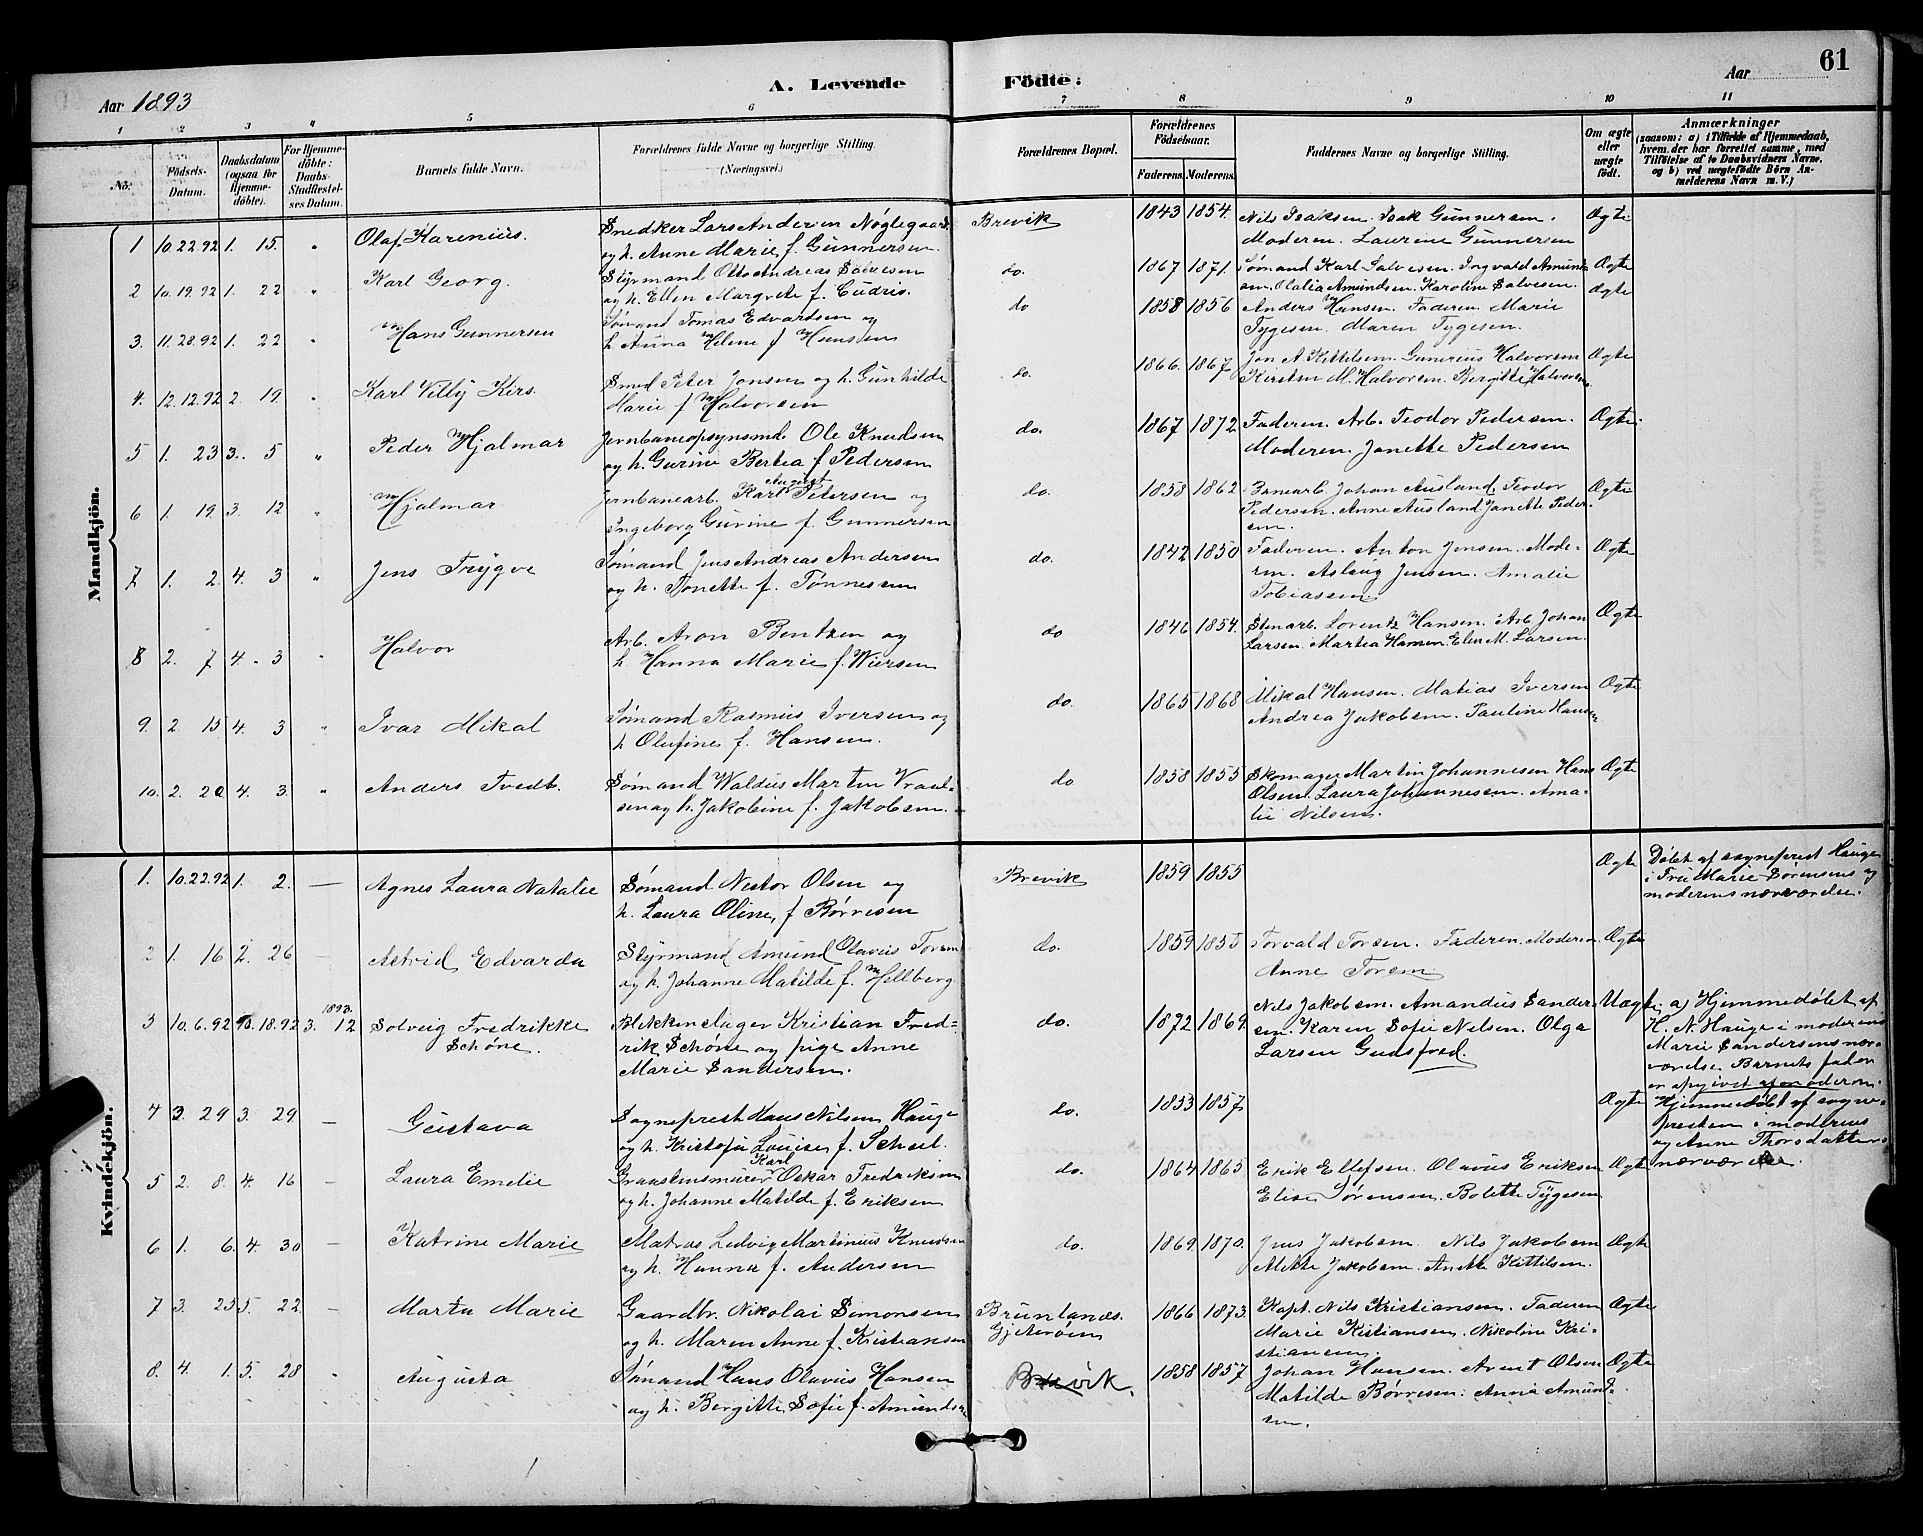 Aar 1893
A. Levende
Fødte:
Aar
61
1 2 3 4 5 6 7 8 9 10 11
No.
Fødsels-
Datum.
Daabsdatum
(ogsaa for
Hjemme-
døbte).
For Hjemme-
døbte:
Daabs-
Stadfæstel-
ses Datum.
Barnets fulde Navn.
Forældrenes fulde Navne og borgerlige Stilling.
(Næringsvei.)
Forældrenes Bopæl.
Forældrenes
Fødselsaar.
Faderens. Moderens.
Faddernes Navne og borgerlige Stilling.
Om ægte
eller
uægte
født.
Anmærkninger
(saasom: a) i Tilfælde af Hjemmedaab,
hvem der har forrettet samme, med
Tilføielse af to Daabsvidners Navne,
og b) ved uægtefødte Børn An-
melderens Navn m. V.)
Mandkjøn.
1 10.22.92 1. 15. " Olaf Karenius. Snedker Lars Andersen Nøglegaard
og h. Anne Marie f. Gunnersen.
Brevik 1843 1854. Nils Isaksen. Isak Gunnersen.
Moderen. Laurine Gunnersen
Ægte
2 10.19.92 1. 22 " Karl Georg. Styrmand Otto Andreas Salvesen
og h. Ellen Margrete f. Gudris.
do. 1867 1871. Sømand Karl Salvesen. Ingvald Amund-
sen. Olalia Amundsen. Karoline Salvesen.
Ægte
3. 11.28.92 1. 22 " Hans Gunnersen Sømand Tomas Edvardsen og
h. Anna Helene f. Hansen
do 1858 1856 Anders Hansen. Faderen. Marie
Tygesen. Maren Tygesen.
Ægte
4. 12.12.92 2. 19. " Karl Villy Kirs. Smed Peter Jansen og h. Gunhilde
Marie f. Halvorsen
do. 1866. 1867. Jon A. Kittilsen. Gunerius Halvorsen
Kirsten M. Halvorsen. Bergitte Halvorsen.
Ægte
5 1. 23 3. 5 " Peder Hjalmar Jernbaneopsynsmd. Ole Knudsen
og h. Gurine Bertea f. Pedersen
do. 1867 1872. Faderen. Arb. Teodor Pedersen.
Moderen. Janette Pedersen
Ægte.
6 1. 19. 3. 12 " Hjalmar Jernbanearb. Karl August Petersen og
Ingeborg Gurine f. Gunnersen
do. 1858 1862 Banearb. Johan Ausland. Teodor
Pedersen. Anne Ausland. Janette Peder-
sen.
Ægte
7 1. 2. 4. 3 " Jens Trygve Sømand Jens Andreas Andersen
og h. Tonette f. Tønnesen
do. 1842 1850 Faderen. Anton Jensen. Mode-
ren. Aslaug Jensen. Amalie
Tobiassen.
Ægte
8 2. 7 4. 3 " Halvor Arb. Aron Bentzen og
h. Hanna Marie f. Wiersen
do 1846 1854. Stenarb. Lorentz Hansen. Arb. Johan
Larsen. Martea Hansen. Elen M. Larsen.
Ægte
9. 2. 15 4. 3 " Ivar Mikal Sømand Rasmus Iversen og
h. Olufine f. Hansen.
do. 1865 1868 Mikal Hansen. Matias Iversen
Andrea Jakobsen. Pauline Hansen
Ægte
10. 2. 20 4. 3. " Anders Tvedt. Sømand Waldus Martin Vraal-
sen og h. Jakobine f. Jakobsen.
do 1858 1855 Skomager Martin Johannesen Hans
Olsen. Laura Johannesen. Ama-
lie Nilsen.
Ægte
Kvindekjøn.
1. 10.22.92 1. 2. — Agnes Laura Natalie Sømand Nestor Olsen og
h. Laura Oline f. Børresen
Brevik 1859 1855 Ægte Døbt af sogneprest Hauge
i Fru Marie Sørensens og
moderens nærværelse.
2 1. 16 2. 26 — Astrid Edvarda Styrmand Amund Olavus Torsen
og h. Johanne Matilde f. Hillberg.
do. 1859 1855 Torvald Torsen. Faderen. Moderen.
Anne Torsen
Ægte
3 10.6.92 10.18.92 1893. 3. 12 Solveig Fredrikke
Schøne.
Blikkenslager Kristian Fred-
rik Schøne og pige Anne
Marie Sandersen.
do. 1872 1869. Nils Jakobsen. Amandus Sander-
sen. Karen Sofie Nilsen. Olga
Larsen Gudsfred.
Uægte. a) Hjemmedøbt af
H. N. Hauge i moderens
Marie Sandersens nær-
værelse. Barnets fader
er opgivet af moderen.
4 3. 29 3. 29. — Gustava Sogneprest Hans Nilsen Hauge
og h. Kristofa Louise f. Scheel.
do. 1853 1857. Ægte Hjemmedøbt af sogne-
presten i moderens
og Anne Thorsdatters
nærværelse.
5 2. 8. 4. 16 — Laura Emelie Graastensmurer Karl Oskar Fredriksen
og h. Johanne Matilde f. Eriksen
do. 1864 1865 Erik Ellefsen. Olavus Eriksen
Elise Sørensen. Bolette Tygesen
Ægte
6 1. 6. 4. 30 — Katrine Marie Matros Ludvig Martinius Knudsen
og h. Hanna f. Andersen
do. 1869. 1870. Jens Jakobsen. Nils Jakobsen
Alette Jakobsen. Anette Kittilsen.
Ægte
7 3. 25 5. 22. — Marta Marie Gaardbr. Nikolai Simonsen
og h. Maren Anne f. Kristiansen
Brunlanæs.
Gjeterøen
1866 1873. Kapt. Nils Kristiansen. Faderen
Marie Kristiansen. Nikoline Kri-
stiansen.
Ægte
8. 4. 1. 5. 28 " Augusta Sømand Hans Olavus Hansen
og h. Bergitte Sofie f. Amundsen
Brevik. 1858 1857. Johan Hansen. Arent Olsen
Matilde Børresen. Anna Amund-
sen.
Ægte